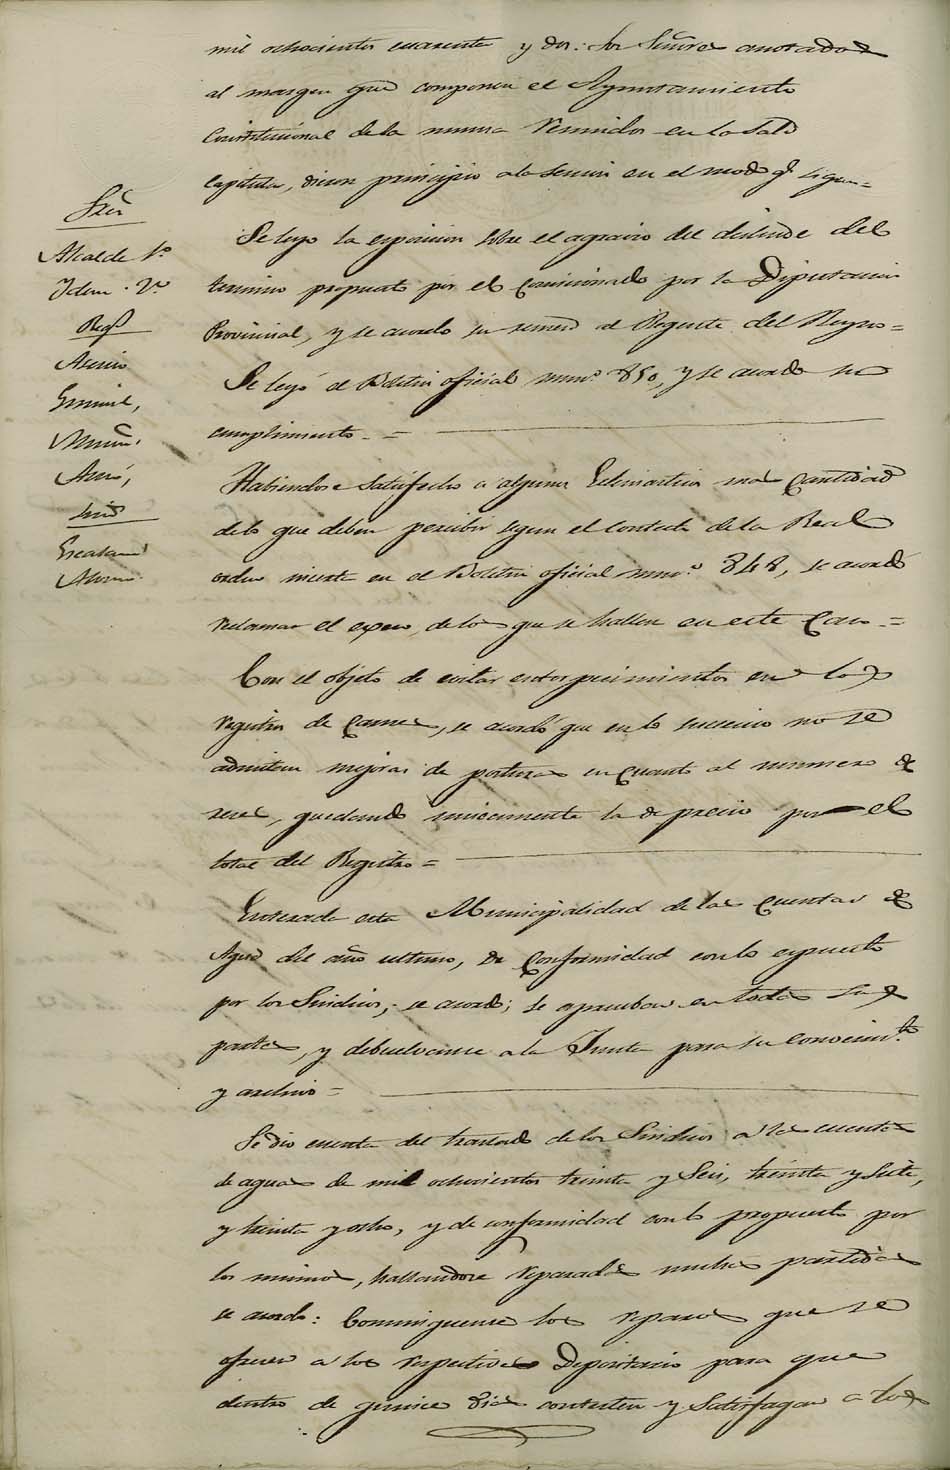 mil ochocientos cuarenta y dos: los Señores anotados
al margen que componen el Ayuntamiento
Constitucional de la misma reunidos en la Sala
Capitular, dieron principio a la sesion en el modo qe sigue=
Sres
Alcalde 1º
Idem 2º
Regs
Asensio
Muñ
Sinds
Se leyo la esposicion sobre el agravio del deslinde del
termino propuesto por el Comisionado por la Diputacion
Provincial, y se acordo su remisn al Regente del Reyno=
Se leyó el Boletin oficial numº 850, y se acordo su
cumplimiento =
Habiendose satisfecho a algunos Esclaustrados mas Cantidad
de la que deben percibir segun el contesto de la Real
orden inserta en el Boletin oficial numº 848, se acordó
reclamar el esceso, de los que se hallen en este Caso=
Con el objeto de evitar entorpecimientos en los
registros de Carnes, se acordó que en lo sucesivo no se
admitan mejoras de posturas en cuanto al numero de
reses, quedando unicamente la de precio por el
total del Registro=
Enterada esta Municipalidad de las Cuentas de
Agua del año ultimo, de Conformidad con lo espuesto
por los Sindicos, se acordo; se aprueban en todas sus
partes, y debuelvanse a la Junta para su conocimto
y archivo=
Se dio cuenta del traslado de los Sindicos a las cuentas
de aguas de mil ochocientos treinta y Seis, treinta y Siete,
y treinta y ocho, y de conformidad con lo propuesto por
los mismos, hallandose reparadas muchas partidas
se acordo: Comuniquense los reparos que se
ofrecen a los respectivos Depositarios para que
dentro de quince dias contesten y Satisfagan a los